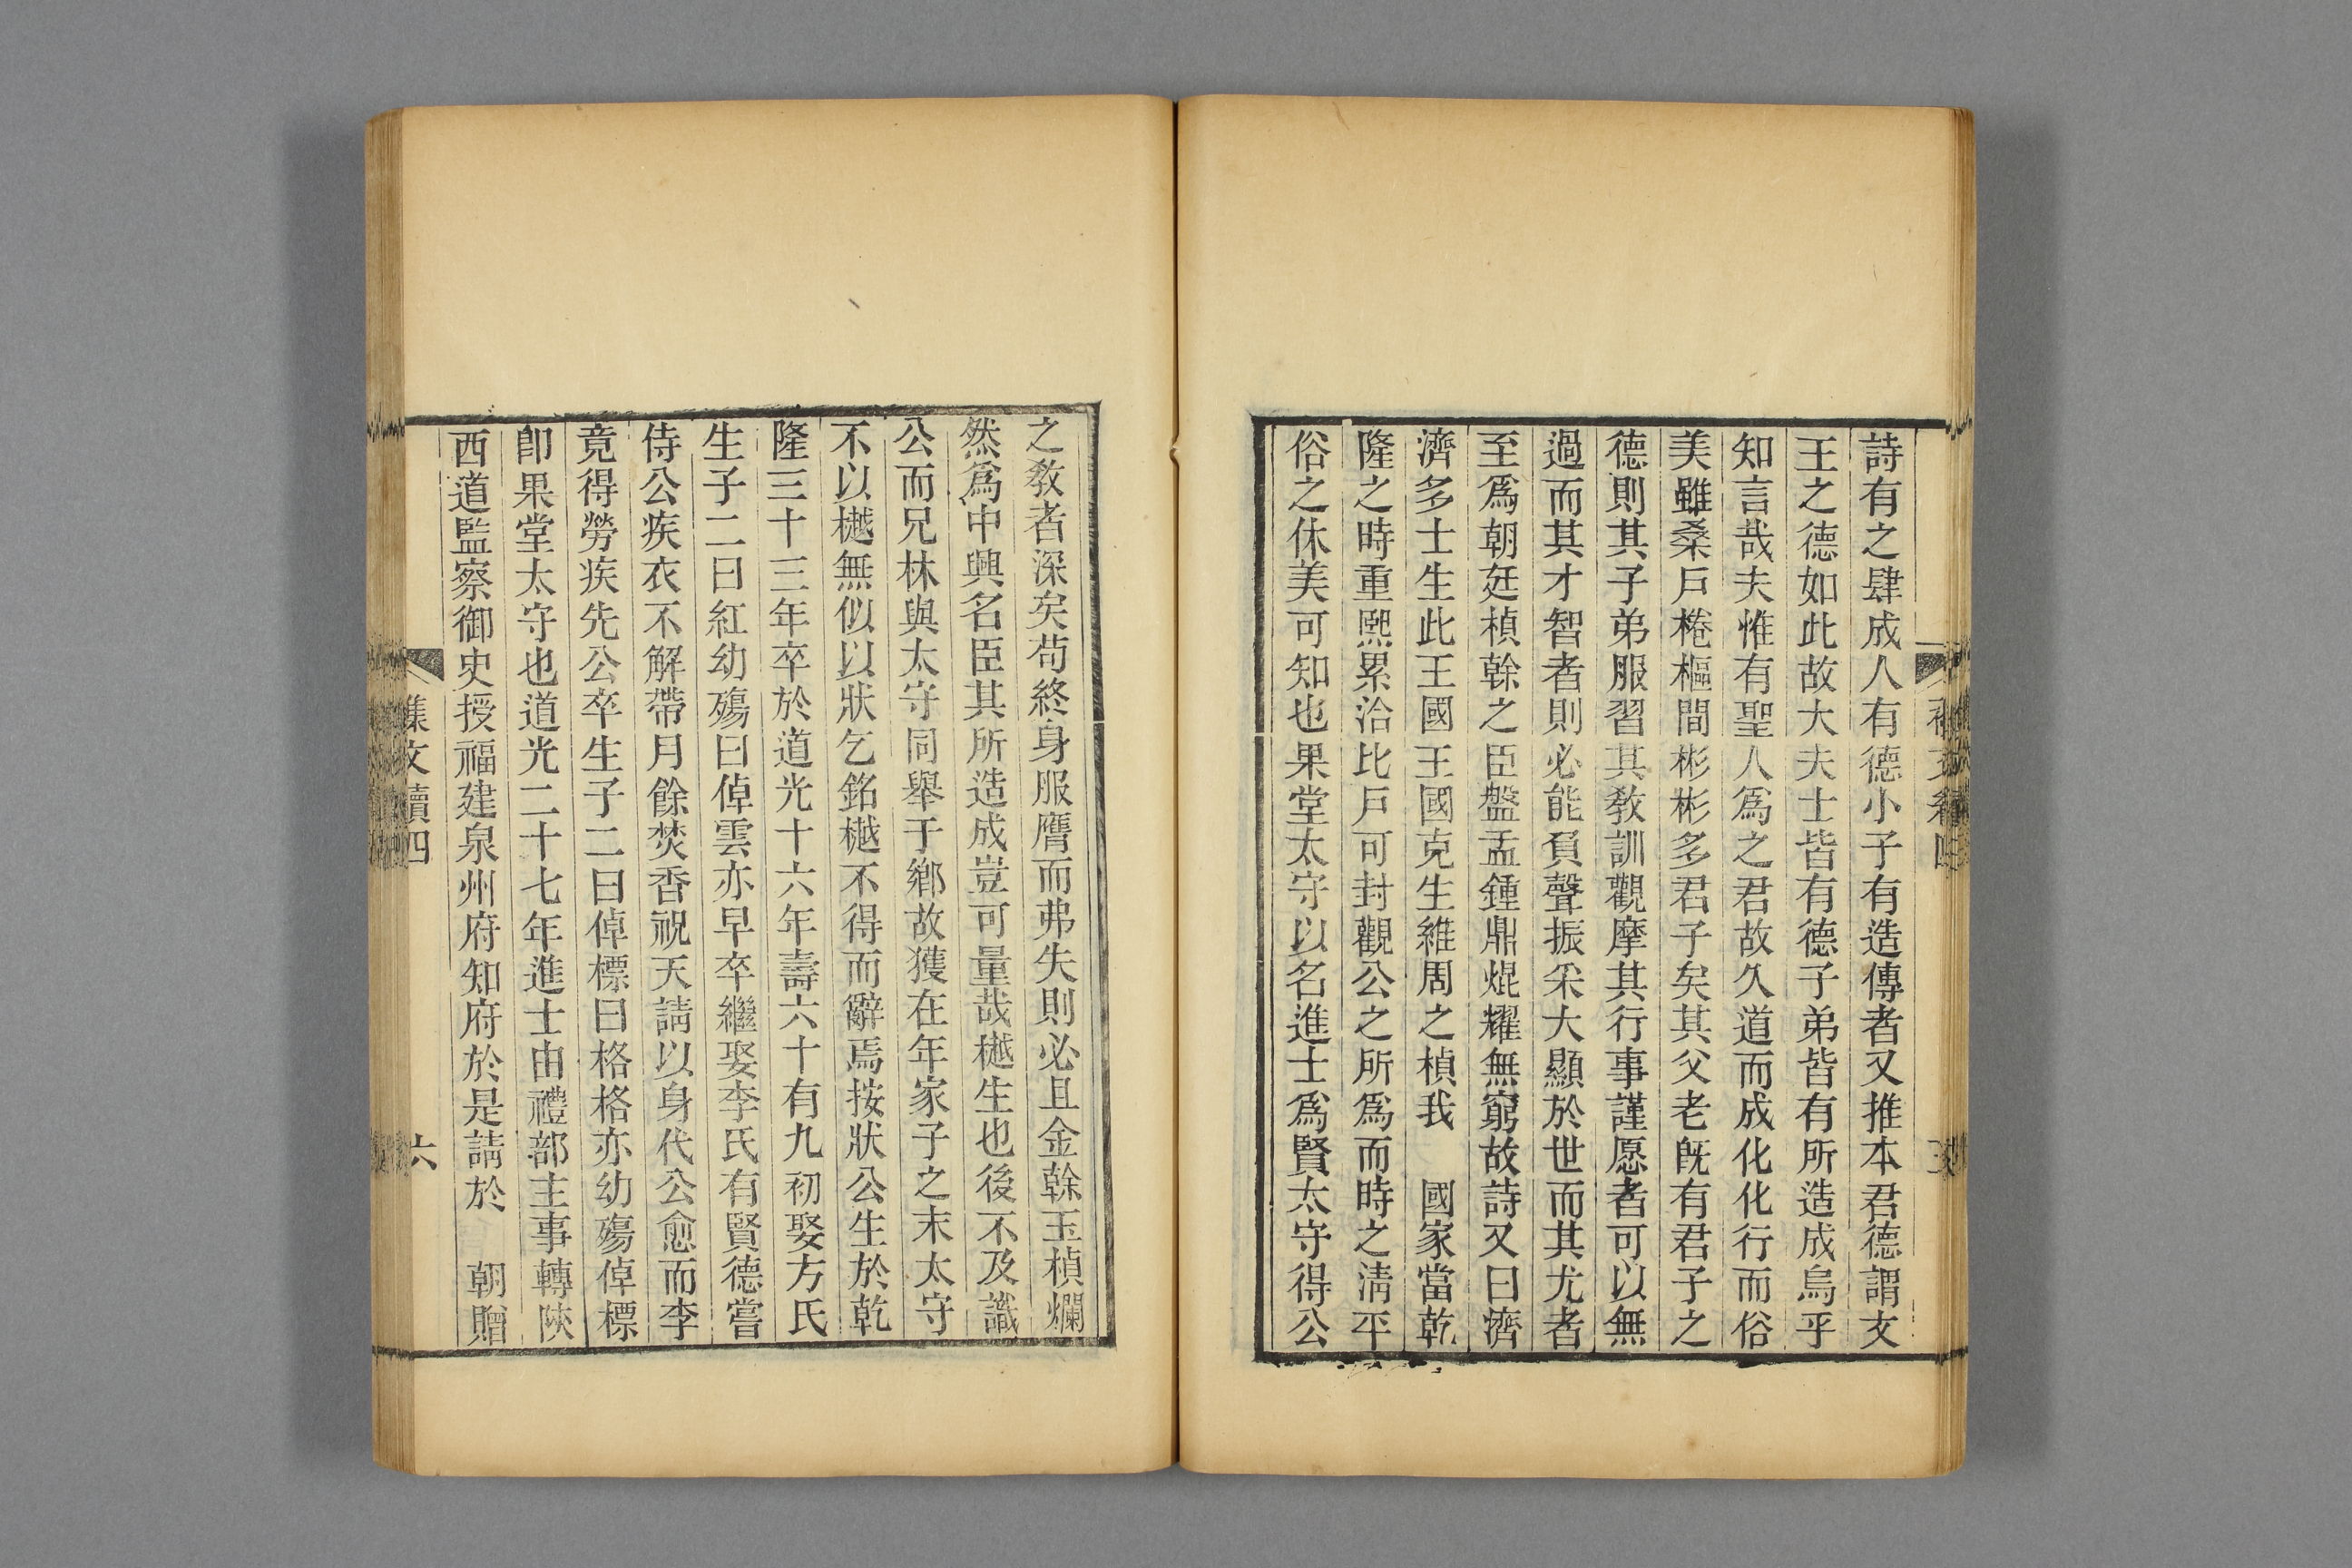 詩有之肆成人有德小子有造傳者又推本君德謂文
王之德如此故大夫士皆有德子弟皆有所造成烏乎
知言哉夫惟有聖人爲之君故久道而成化化行而俗
美雖桑戶棬樞間彬彬多君子矣其父老旣有君子之
德則其子弟服習其教訓觀摩其行事謹愿者可以無
過而其才智者則必能負聲振采大顯於世而其尤者
至爲朝廷楨榦之臣盤盂鍾鼎焜耀無窮故詩又曰濟
濟多士生此王國王國克生維周之楨我 國家當乾
隆之時重熙累洽比戶可封觀公之所爲而時之淸平
俗之休美可知也果堂太守以名進士爲賢太守得公
之教者深矣苟終身服膺而弗失則必且金榦玉楨爛
然爲中興名臣其所造成豈可量哉樾生也後不及識
公而兄林與太守同舉于鄉故獲在年家子之末太守
不以樾無似以狀乞銘樾不得而辭焉按狀公生於乾
隆三十三年卒於道光十六年壽六十有九初娶方氏
生子二曰紅幼殤曰倬雲亦早卒繼娶李氏有賢德嘗
侍公疾衣不解帶月餘焚香祝天請以身代公愈而李
竟得勞疾先公卒生子二曰倬標曰格格亦幼殤倬標
卽果堂太守也道光二十七年進士由禮部主事轉陝
西道監察御史授福建泉州府知府於是請於 朝贈
集文續四
六